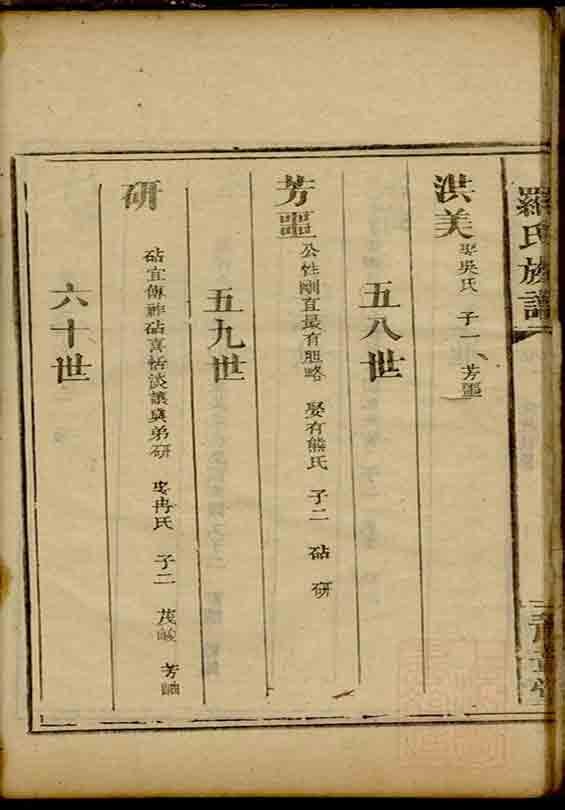 羅氏族譜
洪美 娶吳氏 子一、芳璽
五八世
芳璽 公性剛直最有胆略 娶有熊氏 子二 砧 研
五九世
研 砧宜傳祚砧喜恬淡讓與弟研 娶冉氏 子二 茂 芳
六十世